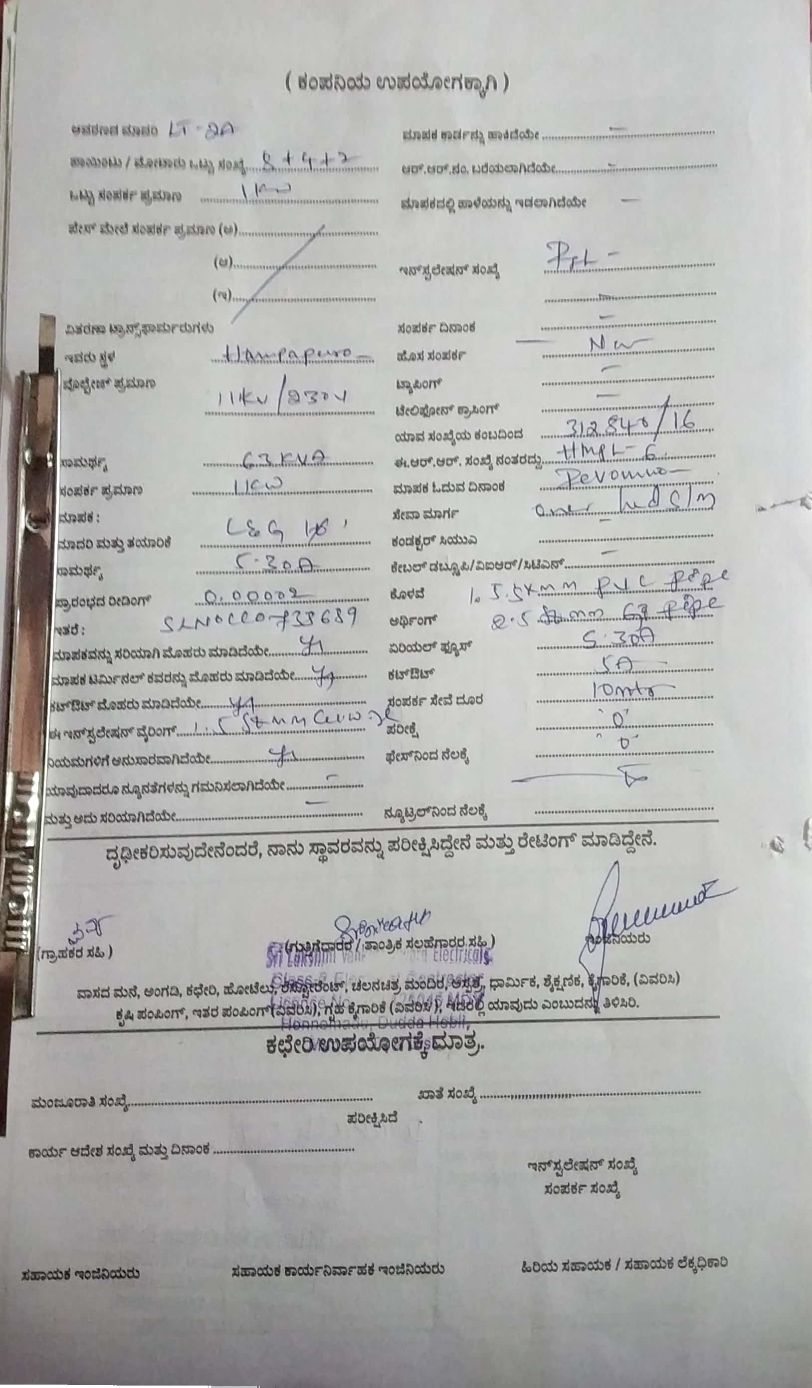 ( ಕಂಪನಿಯ ಉಪಯೋಗಕ್ಕಾಗಿ )
ಆವರಣದ ಮಾಪಂ LT-2A
ಮಾಪಕ ಕಾರ್ಡನ್ನು ಹಾಕಿದೆಯೇ
ಪಾಯಿಂಟು / ಮೋಟಾರು ಒಟ್ಟು ಸಂಖ್ಯೆ 8+4+2
ಆರ್.ಆರ್.ನಂ. ಬರೆಯಲಾಗಿದೆಯೇ
ಒಟ್ಟು ಸಂಪರ್ಕ ಪ್ರಮಾಣ 1KW
ಮಾಪಕದಲ್ಲಿ ಹಾಳೆಯನ್ನು ಇಡಲಾಗಿದೆಯೇ
ಫೇಸ್ ಮೇಲೆ ಸಂಪರ್ಕ ಪ್ರಮಾಣ (ಅ)
(ಆ)
ಇನ್‌ಸ್ಟಲೇಷನ್ ಸಂಖ್ಯೆ
(ಇ)
ವಿತರಣಾ ಟ್ರಾನ್ಸ್‌ಫಾರ್ಮರುಗಳು
ಸಂಪರ್ಕ ದಿನಾಂಕ
ಇವರು ಸ್ಥಳ Hampapura
ಹೊಸ ಸಂಪರ್ಕ New
ವೋಲ್ಟೇಜ್ ಪ್ರಮಾಣ 11KV/230V
ಟ್ಯಾಪಿಂಗ್
ಟೆಲಿಫೋನ್ ಕ್ರಾಸಿಂಗ್
ಯಾವ ಸಂಖ್ಯೆಯ ಕಂಬದಿಂದ 312840/16
ಸಾಮರ್ಥ್ಯ 63 KVA
ಈ.ಆರ್.ಆರ್. ಸಂಖ್ಯೆ ನಂತರದ್ದು HMPL-6
ಸಂಪರ್ಕ ಪ್ರಮಾಣ 1KW
ಮಾಪಕ ಓದುವ ದಿನಾಂಕ
ಮಾಪಕ :
ಸೇವಾ ಮಾರ್ಗ
ಮಾದರಿ ಮತ್ತು ತಯಾರಿಕೆ L&G
ಕಂಡಕ್ಟರ್ ಸಿಯುವಿ
ಸಾಮರ್ಥ್ಯ 5-30A
ಕೇಬಲ್ ಡಬ್ಲ್ಯೂಪಿ/ವಿಐಆರ್/ಸಿಟಿಎನ್
ಪ್ರಾರಂಭದ ರೀಡಿಂಗ್ 0.00002
ಕೊಳವೆ PVC pipe
ಇತರೆ :
ಅರ್ಥಿಂಗ್ GI pipe
ಮಾಪಕವನ್ನು ಸರಿಯಾಗಿ ಮೊಹರು ಮಾಡಿದೆಯೇ
ಏರಿಯಲ್ ಫ್ಯೂಸ್ 5.30A
ಮಾಪಕ ಟರ್ಮಿನಲ್ ಕವರನ್ನು ಮೊಹರು ಮಾಡಿದೆಯೇ
ಕಟ್‌ಔಟ್ 5A
ಕಟ್‌ಔಟ್ ಮೊಹರು ಮಾಡಿದೆಯೇ
ಸಂಪರ್ಕ ಸೇವೆ ದೂರ 10mts
ಈ ಇನ್‌ಸ್ಟಲೇಷನ್ ವೈರಿಂಗ್
ಪರೀಕ್ಷೆ '0'
ನಿಯಮಗಳಿಗೆ ಅನುಸಾರವಾಗಿದೆಯೇ
ಫೇಸ್‌ನಿಂದ ನೆಲಕ್ಕೆ "0'
ಯಾವುದಾದರೂ ನ್ಯೂನತೆಗಳನ್ನು ಗಮನಿಸಲಾಗಿದೆಯೇ
ಮತ್ತು ಅದು ಸರಿಯಾಗಿದೆಯೇ
ನ್ಯೂಟ್ರಲ್‌ನಿಂದ ನೆಲಕ್ಕೆ
ದೃಢೀಕರಿಸುವುದೇನೆಂದರೆ, ನಾನು ಸ್ಥಾವರವನ್ನು ಪರೀಕ್ಷಿಸಿದ್ದೇನೆ ಮತ್ತು ರೇಟಿಂಗ್ ಮಾಡಿದ್ದೇನೆ.
(ಗ್ರಾಹಕರ ಸಹಿ )
(ಗುತ್ತಿಗೆದಾರರ / ತಾಂತ್ರಿಕ ಸಲಹೆಗಾರರ ಸಹಿ )
ಇಂಜಿನಿಯರು
Sri Lakshmi electricals
ವಾಸದ ಮನೆ, ಅಂಗಡಿ, ಕಛೇರಿ, ಹೋಟೆಲು, ರೆಸ್ಟೋರೆಂಟ್, ಚಲನಚಿತ್ರ, ಮಂದಿರ, ಆಸ್ಪತ್ರೆ, ಧಾರ್ಮಿಕ, ಶೈಕ್ಷಣಿಕ, ಕೈಗಾರಿಕೆ, (ವಿವರಿಸಿ)
ಕೃಷಿ ಪಂಪಿಂಗ್, ಇತರ ಪಂಪಿಂಗ್ (ವಿವರಿಸಿ), ಗೃಹ ಕೈಗಾರಿಕೆ (ವಿವರಿಸಿ), ಇದರಲ್ಲಿ ಯಾವುದು ಎಂಬುದನ್ನು ತಿಳಿಸಿರಿ.
Honnomadu, Dudda Hobli,
ಕಛೇರಿ ಉಪಯೋಗಕ್ಕೆ ಮಾತ್ರ.
ಮಂಜೂರಾತಿ ಸಂಖ್ಯೆ
ಖಾತೆ ಸಂಖ್ಯೆ
ಪರೀಕ್ಷಿಸಿದೆ
ಕಾರ್ಯ ಆದೇಶ ಸಂಖ್ಯೆ ಮತ್ತು ದಿನಾಂಕ
ಇನ್‌ಸ್ಟಲೇಷನ್ ಸಂಖ್ಯೆ
ಸಂಪರ್ಕ ಸಂಖ್ಯೆ
ಸಹಾಯಕ ಇಂಜಿನಿಯರು
ಸಹಾಯಕ ಕಾರ್ಯನಿರ್ವಾಹಕ ಇಂಜಿನಿಯರು
ಹಿರಿಯ ಸಹಾಯಕ / ಸಹಾಯಕ ಲೆಕ್ಕಧಿಕಾರಿ